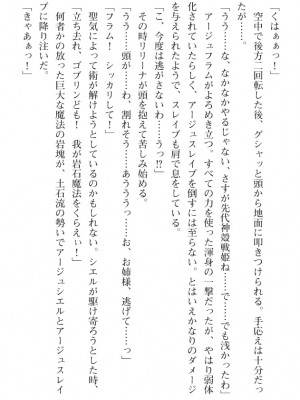 「くはぁぁっ！」
　空中で後方二回転した後、グシャッと頭から地面に叩きつけられる。手応えは十分だっ
たが……。
「うう……な、なかなかやるじゃない、さすが先代神殻戦姫ね……で……でも浅かったわ」
　アージュフラムがよろめき立つ。すべての力を使った渾身の一撃だったが、やはり弱体
化されていたらしく、アージュスレイブを倒すには至らない。とはいえかなりのダメージ
を与えられたようで、スレイブも肩で息をしている。
「こ、今度は逃がさないわ……うっ!?」
　その時リリーナが頭を抱えて苦しみ始める。
「ううう……頭が……わ、割れそう……あううっ……お、お姉様、逃げて……っ」
「フラム！　シッカリして！」
　聖気によって術が解けようとしているのかもしれない。シエルが駆け寄ろうとした時、
「立ち去れ、ゴブリンども！　我が岩石魔法をくらえぃ！」
　何者かの放った巨大な魔法の岩塊が、土石流の勢いでアージュシエルとアージュスレイ
ブに降り注いだ。
「きゃあぁっ！」